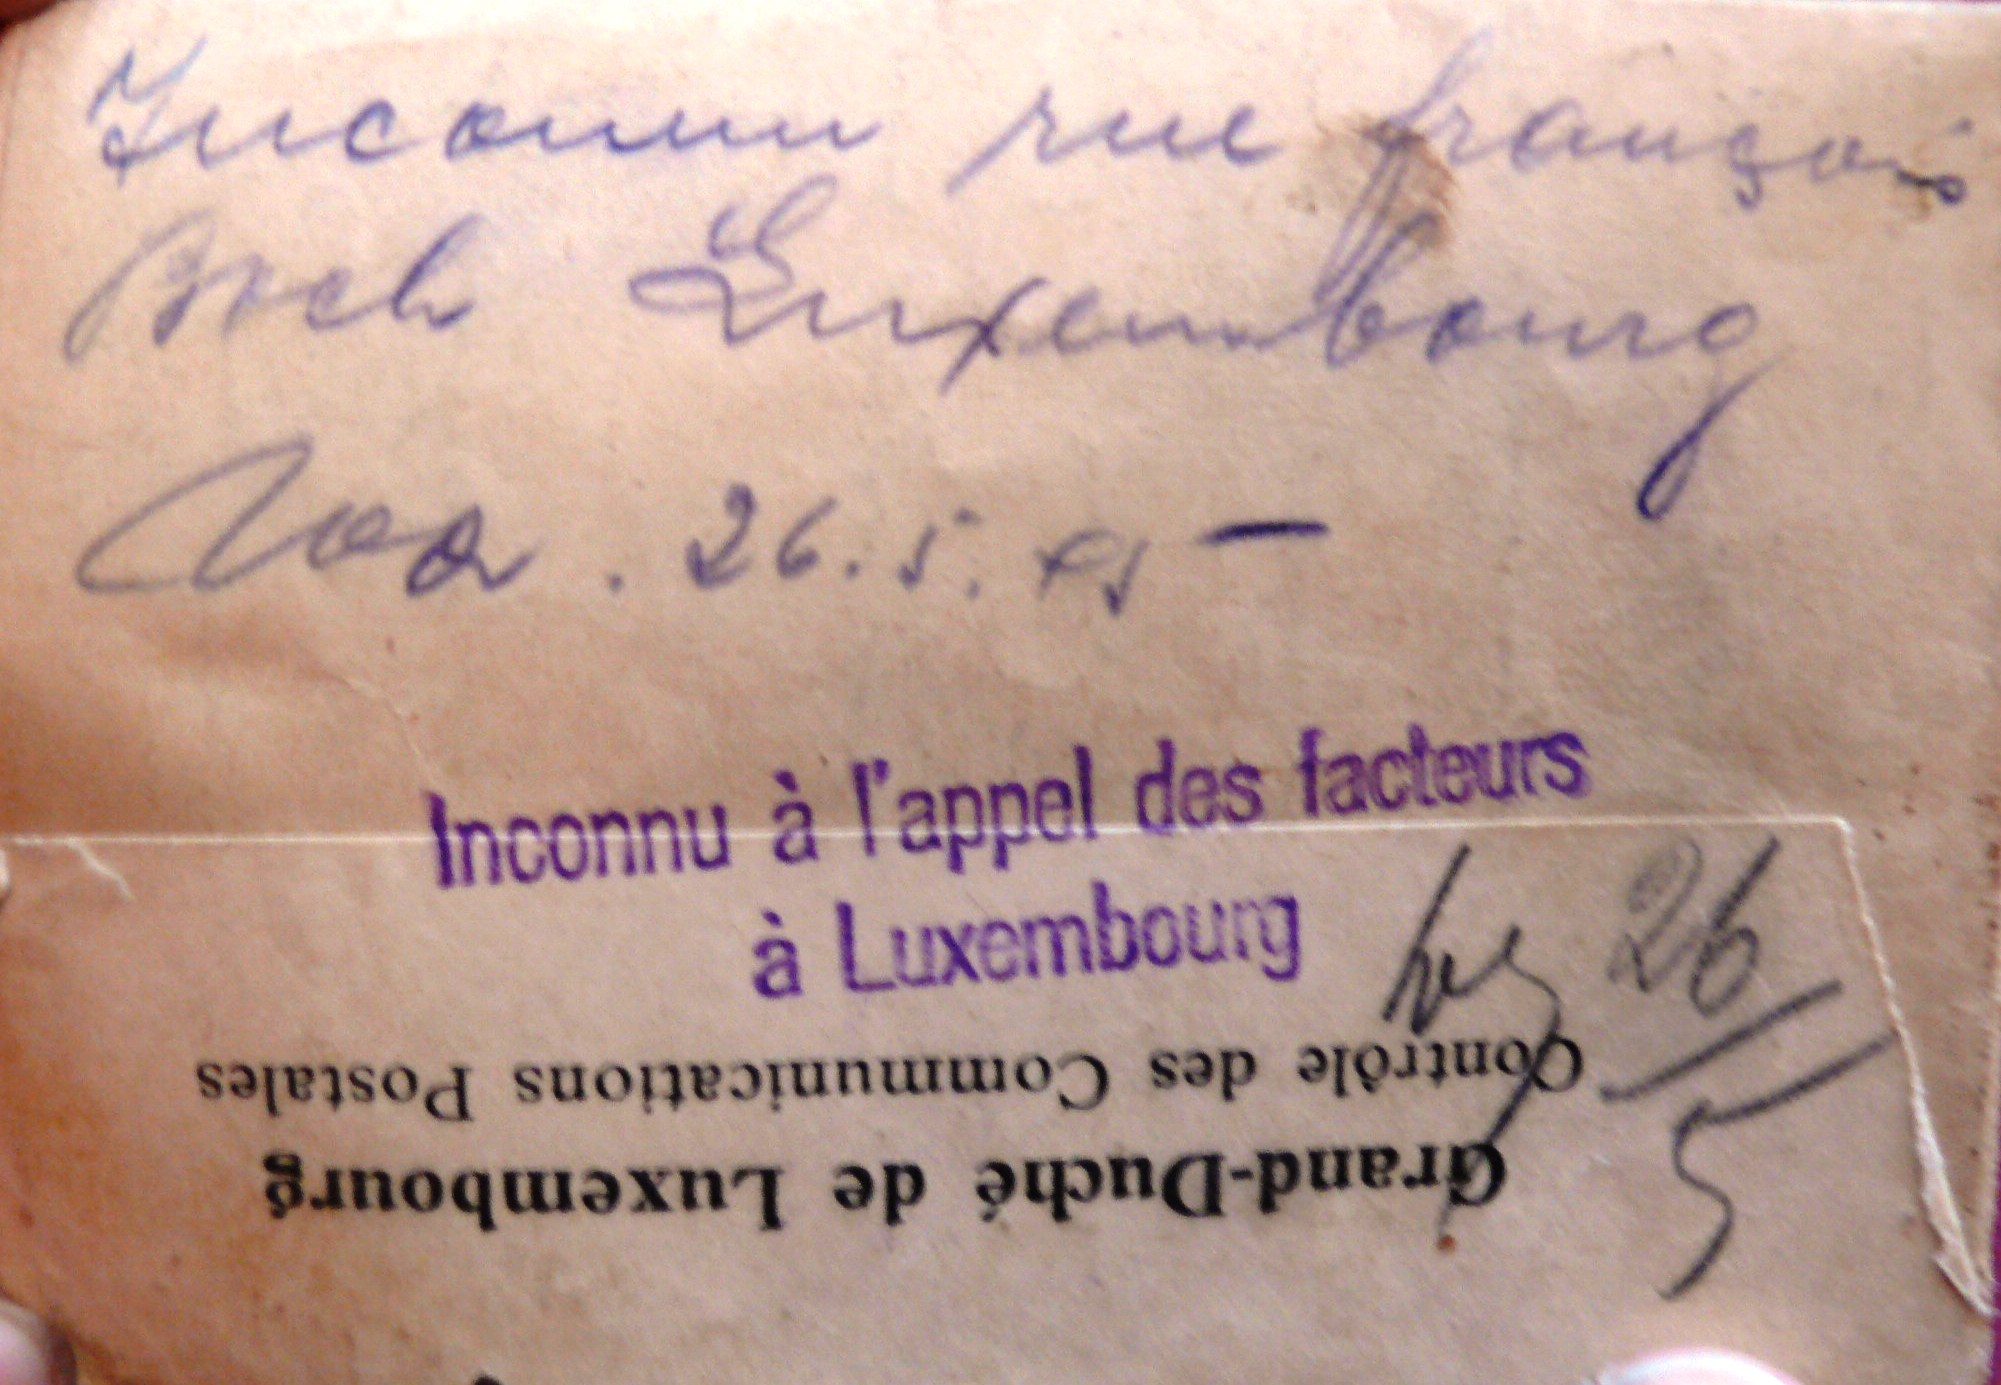 Inconnu rue françois
Boch Luxembourg
26.5.
Inconnu à l'appel des facteurs
à Luxembourg
26
5
Contrôle des Communications Postales
Grand-Duché de Luxembourg